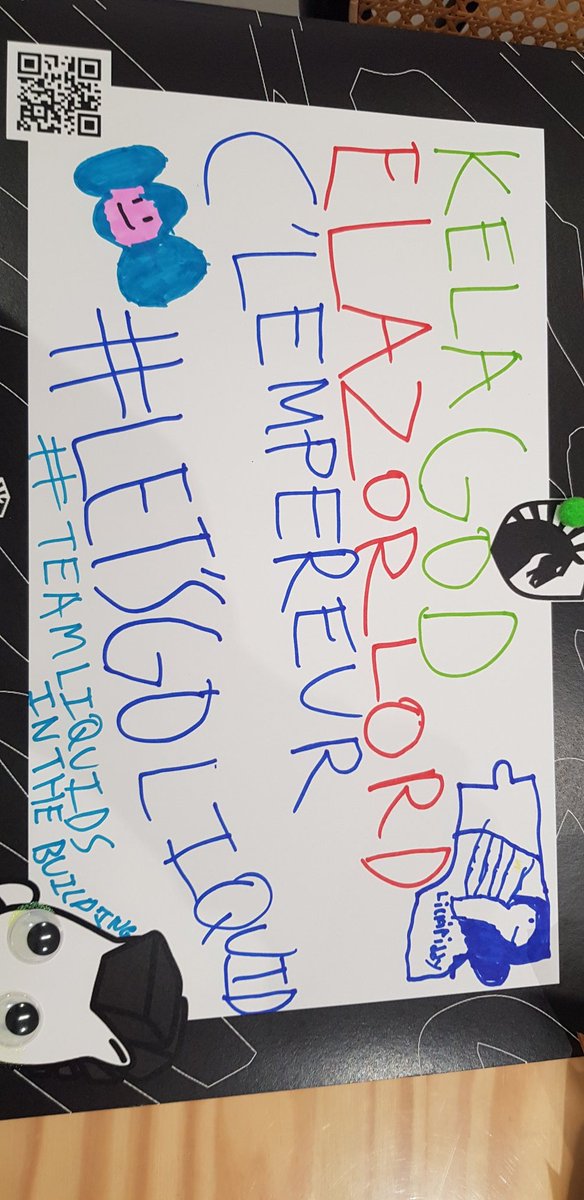 KELAGOD
ELAZORLORD
C'LEMPEREUR
#LET'SGOLIQUID
#TEAMLIQUIDS
INTHE BUILDING